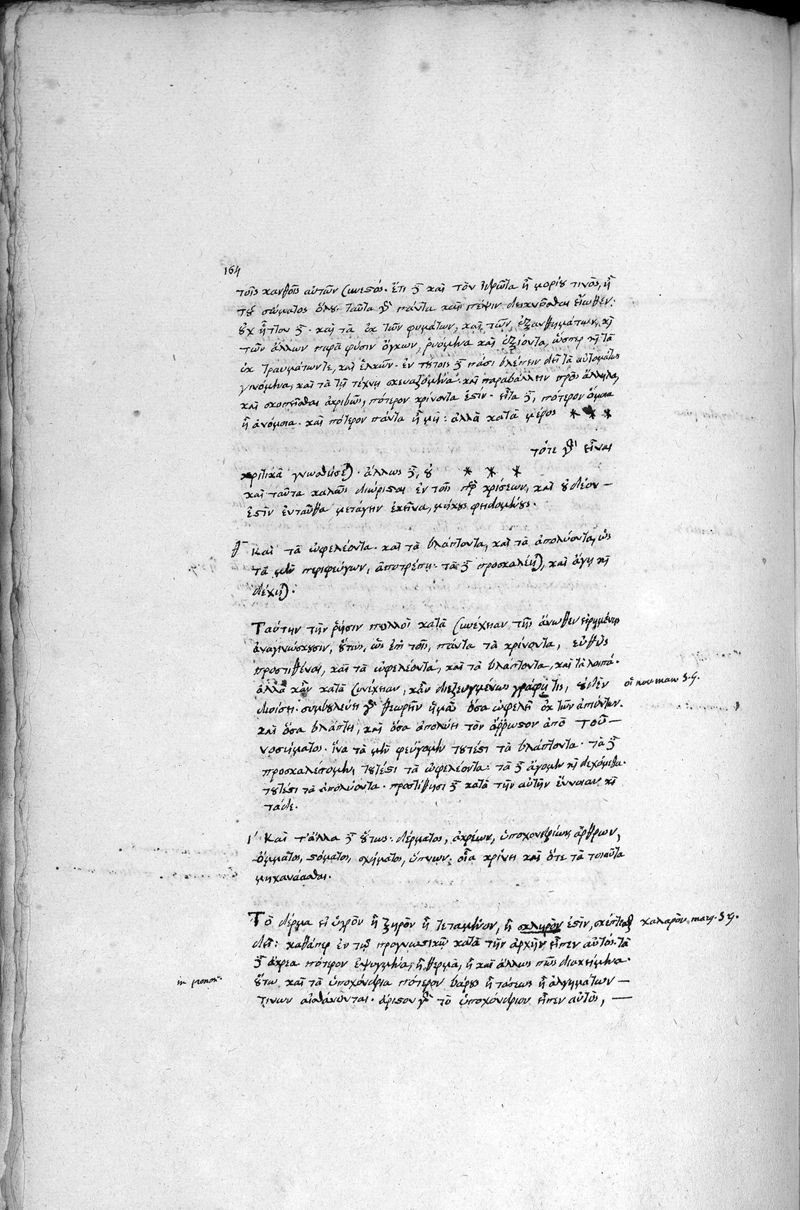 164
τοῖς κανθοῖς αὐτῶν συνεχές. ἔτι δὲ καὶ τὸν ἱδρῶτα ἢ μορίου τινὸς, ἢ
τοῦ σώματος ὅλου. ταῦτα γὰρ πάντα καὶ πέψιν εἴωθεν.
οὐχ ἧττον δὲ καὶ τὰ ἐκ τῶν φυμάτων, καὶ τῶν ἐξανθημάτων, καὶ
τῶν ἄλλων παρὰ φύσιν ὄγκων, καὶ ὥσπερ καὶ τὰ
ἐκ τραυμάτων τε, καὶ ἑλκῶν. ἐν τούτοις δὲ πᾶσι βλέπειν δεῖ τὰ αὐτομάτως
γινόμενα, καὶ τὰ τῇ τέχνῃ σκευαζόμενα. καὶ παραβάλλειν πρὸς ἄλληλα,
καὶ σκοπεῖσθαι ἀκριβῶς, πότερον κρίνοντα ἐστίν. εἶτα δὲ, πότερον ὅμοια
ἢ ἀνόμοια. καὶ πότερον πάντα ἢ μή: ἀλλὰ κατὰ μέρος * * *
τότε γὰρ εἶναι
κριτικὰ γνωσθήσεται. ἄλλως δὲ, οὐ * * *
καὶ ταῦτα καλῶς διώρισται ἐν τοῖς περὶ κρίσεων, καὶ οὐ δέον
ἐστὶν ἐνταῦθα μετάγειν ἐκεῖνα, μήκους φειδομένους.
θ Καὶ τὰ ὠφελέοντα. καὶ τὰ βλάπτοντα, καὶ τὰ ἀπολύοντα, ὡς
τὰ μὲν περιφεύγων, ἀποτρέπῃ. τὰ δὲ προσκαλέηται, καὶ ἄγῃ καὶ
δέχηται.
Ταύτην τὴν ῥῆσιν πολλοὶ κατὰ συνέχειαν τῆς ἄνωθεν εἰρημένης
ἀναγινώσκουσιν, οὕτως, ὡς ἐπὶ τοῖς, πάντα τὰ κρίνοντα, εὐθὺς
προστιθέναι, καὶ τὰ ὠφελέοντα, καὶ τὰ βλάπτοντα, καὶ τὰ λοιπά.
ἀλλὰ κἂν κατὰ συνέχειαν, κἂν διεζευγμένως γράφῃ τις, οὐδὲν
διοίσει. συμβουλεύει γὰρ θεωρεῖν ἡμᾶς ὅσα ὠφελεῖ ἐκ τῶν ἁπάντων.
καὶ ὅσα βλάπτει, καὶ ὅσα ἀπολύει τὸν ἄρρωστον ἀπὸ τοῦ
νοσήματος. ἵνα τὰ μὲν φεύγομεν τουτέστι τὰ βλάπτοντα. τὰ δὲ
προσκαλέσωμεν, τουτέστι τὰ ὠφελέοντα. τὰ δὲ ἄγομεν καὶ δεχόμεθα.
τουτέστι τὰ ἀπολύοντα. προστίθησι δὲ κατὰ τὴν αὐτὴν ἔννοιαν καὶ
τάδε.
ι Καὶ τἄλλα δὲ οὕτως: δέρματος, ἀκρέων, ὑποχονδρίων, ἄρθρων,
ὄμματος, στόματος, σχήματος, ὕπνων, οἷα κρίνει καὶ ὅτε τὰ τοιαῦτα
μηχανάασθαι.
Τὸ δέρμα εἰ ὑγρὸν ἢ ξηρὸν ἢ τεταμένον, ἢ σκληρὸν ἐστὶν, σκέπτεσθαι χαλαρὸν. marg.
δεῖ: καθάπερ ἐν τῷ προγνωστικῷ κατὰ τὴν ἀρχὴν εἶπεν αὐτός. τὰ
δὲ ἄκρεα πότερον ἐψυγμένα, ἢ θερμὰ, ἢ καὶ ἄλλως πῶς διακείμενα.
οὕτω καὶ τὰ ὑποχόνδρια πότερον βάρους ἢ τάσεως ἢ ἀλγημάτων
τινων αἰσθάνονται. ἄριστον γὰρ τὸ ὑποχόνδριον εἶπεν αὐτὸς,